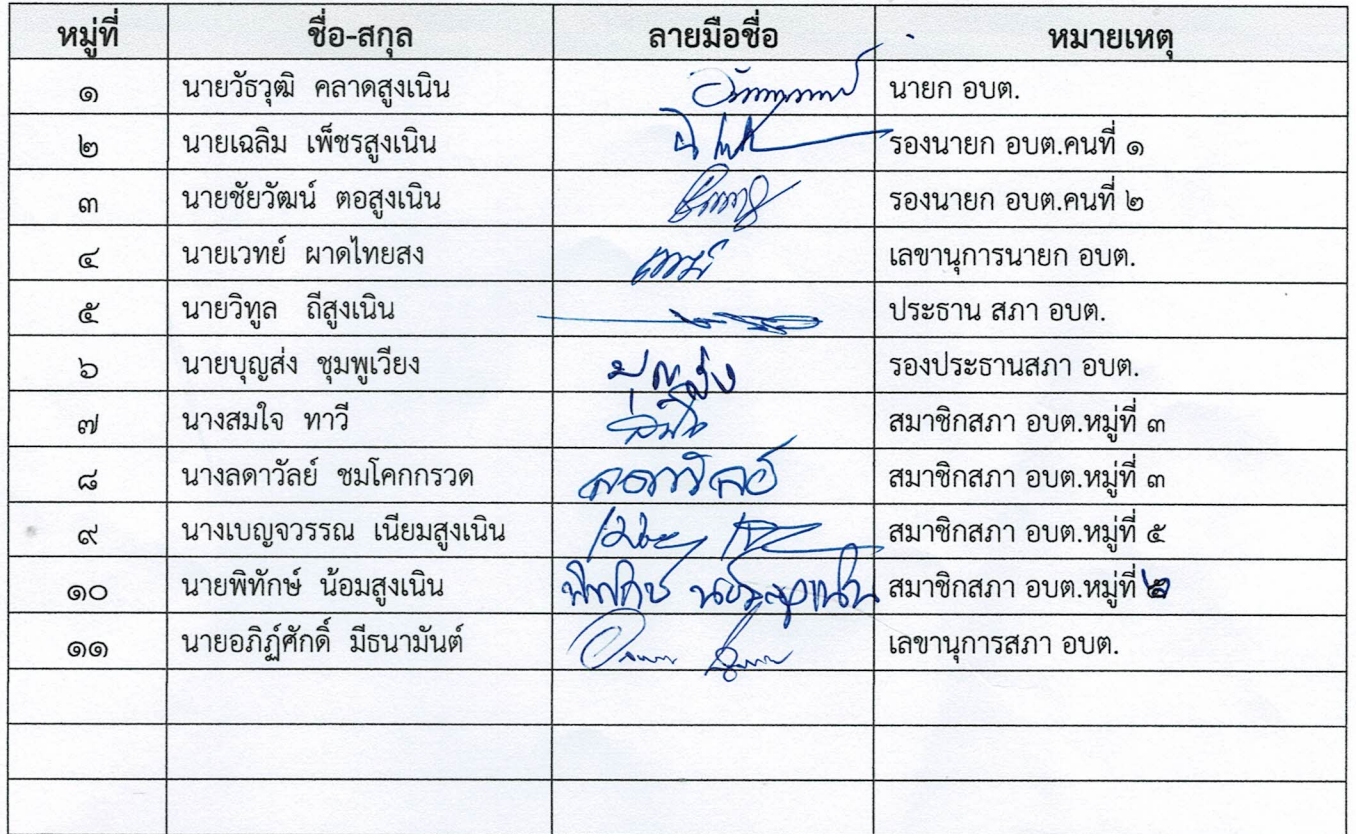 หมู่ที่ ชื่อ-สกุล ลายมือชื่อ หมายเหตุ
๑ นายวัธวุฒิ คลาดสูงเนิน นายก อบต.
๒ นายเฉลิม เพ็ชรสูงเนิน รองนายก อบต.คนที่ ๑
๓ นายชัยวัฒน์ ตอสูงเนิน รองนายก อบต.คนที่ ๒
๔ นายเวทย์ ผาดไทยสง เลขานุการนายก อบต.
๕ นายวิทูล ถีสูงเนิน ประธาน สภา อบต.
๖ นายบุญส่ง ชุมพูเวียง บุญส่ง รองประธานสภา อบต.
๗ นางสมใจ ทาวี สมาชิกสภา อบต.หมู่ที่ ๓
๘ นางลดาวัลย์ ชมโคกกรวด ลดาวัลย์ สมาชิกสภา อบต.หมู่ที่ ๓
๙ นางเบญจวรรณ เนียมสูงเนิน สมาชิกสภา อบต.หมู่ที่ ๕
๑๐ นายพิทักษ์ น้อมสูงเนิน พิทักษ์ น้อมสูงเนิน สมาชิกสภา อบต.หมู่ที่
๑๑ นายอภิฏ์ศักดิ์ มีธนามันต์ เลขานุการสภา อบต.